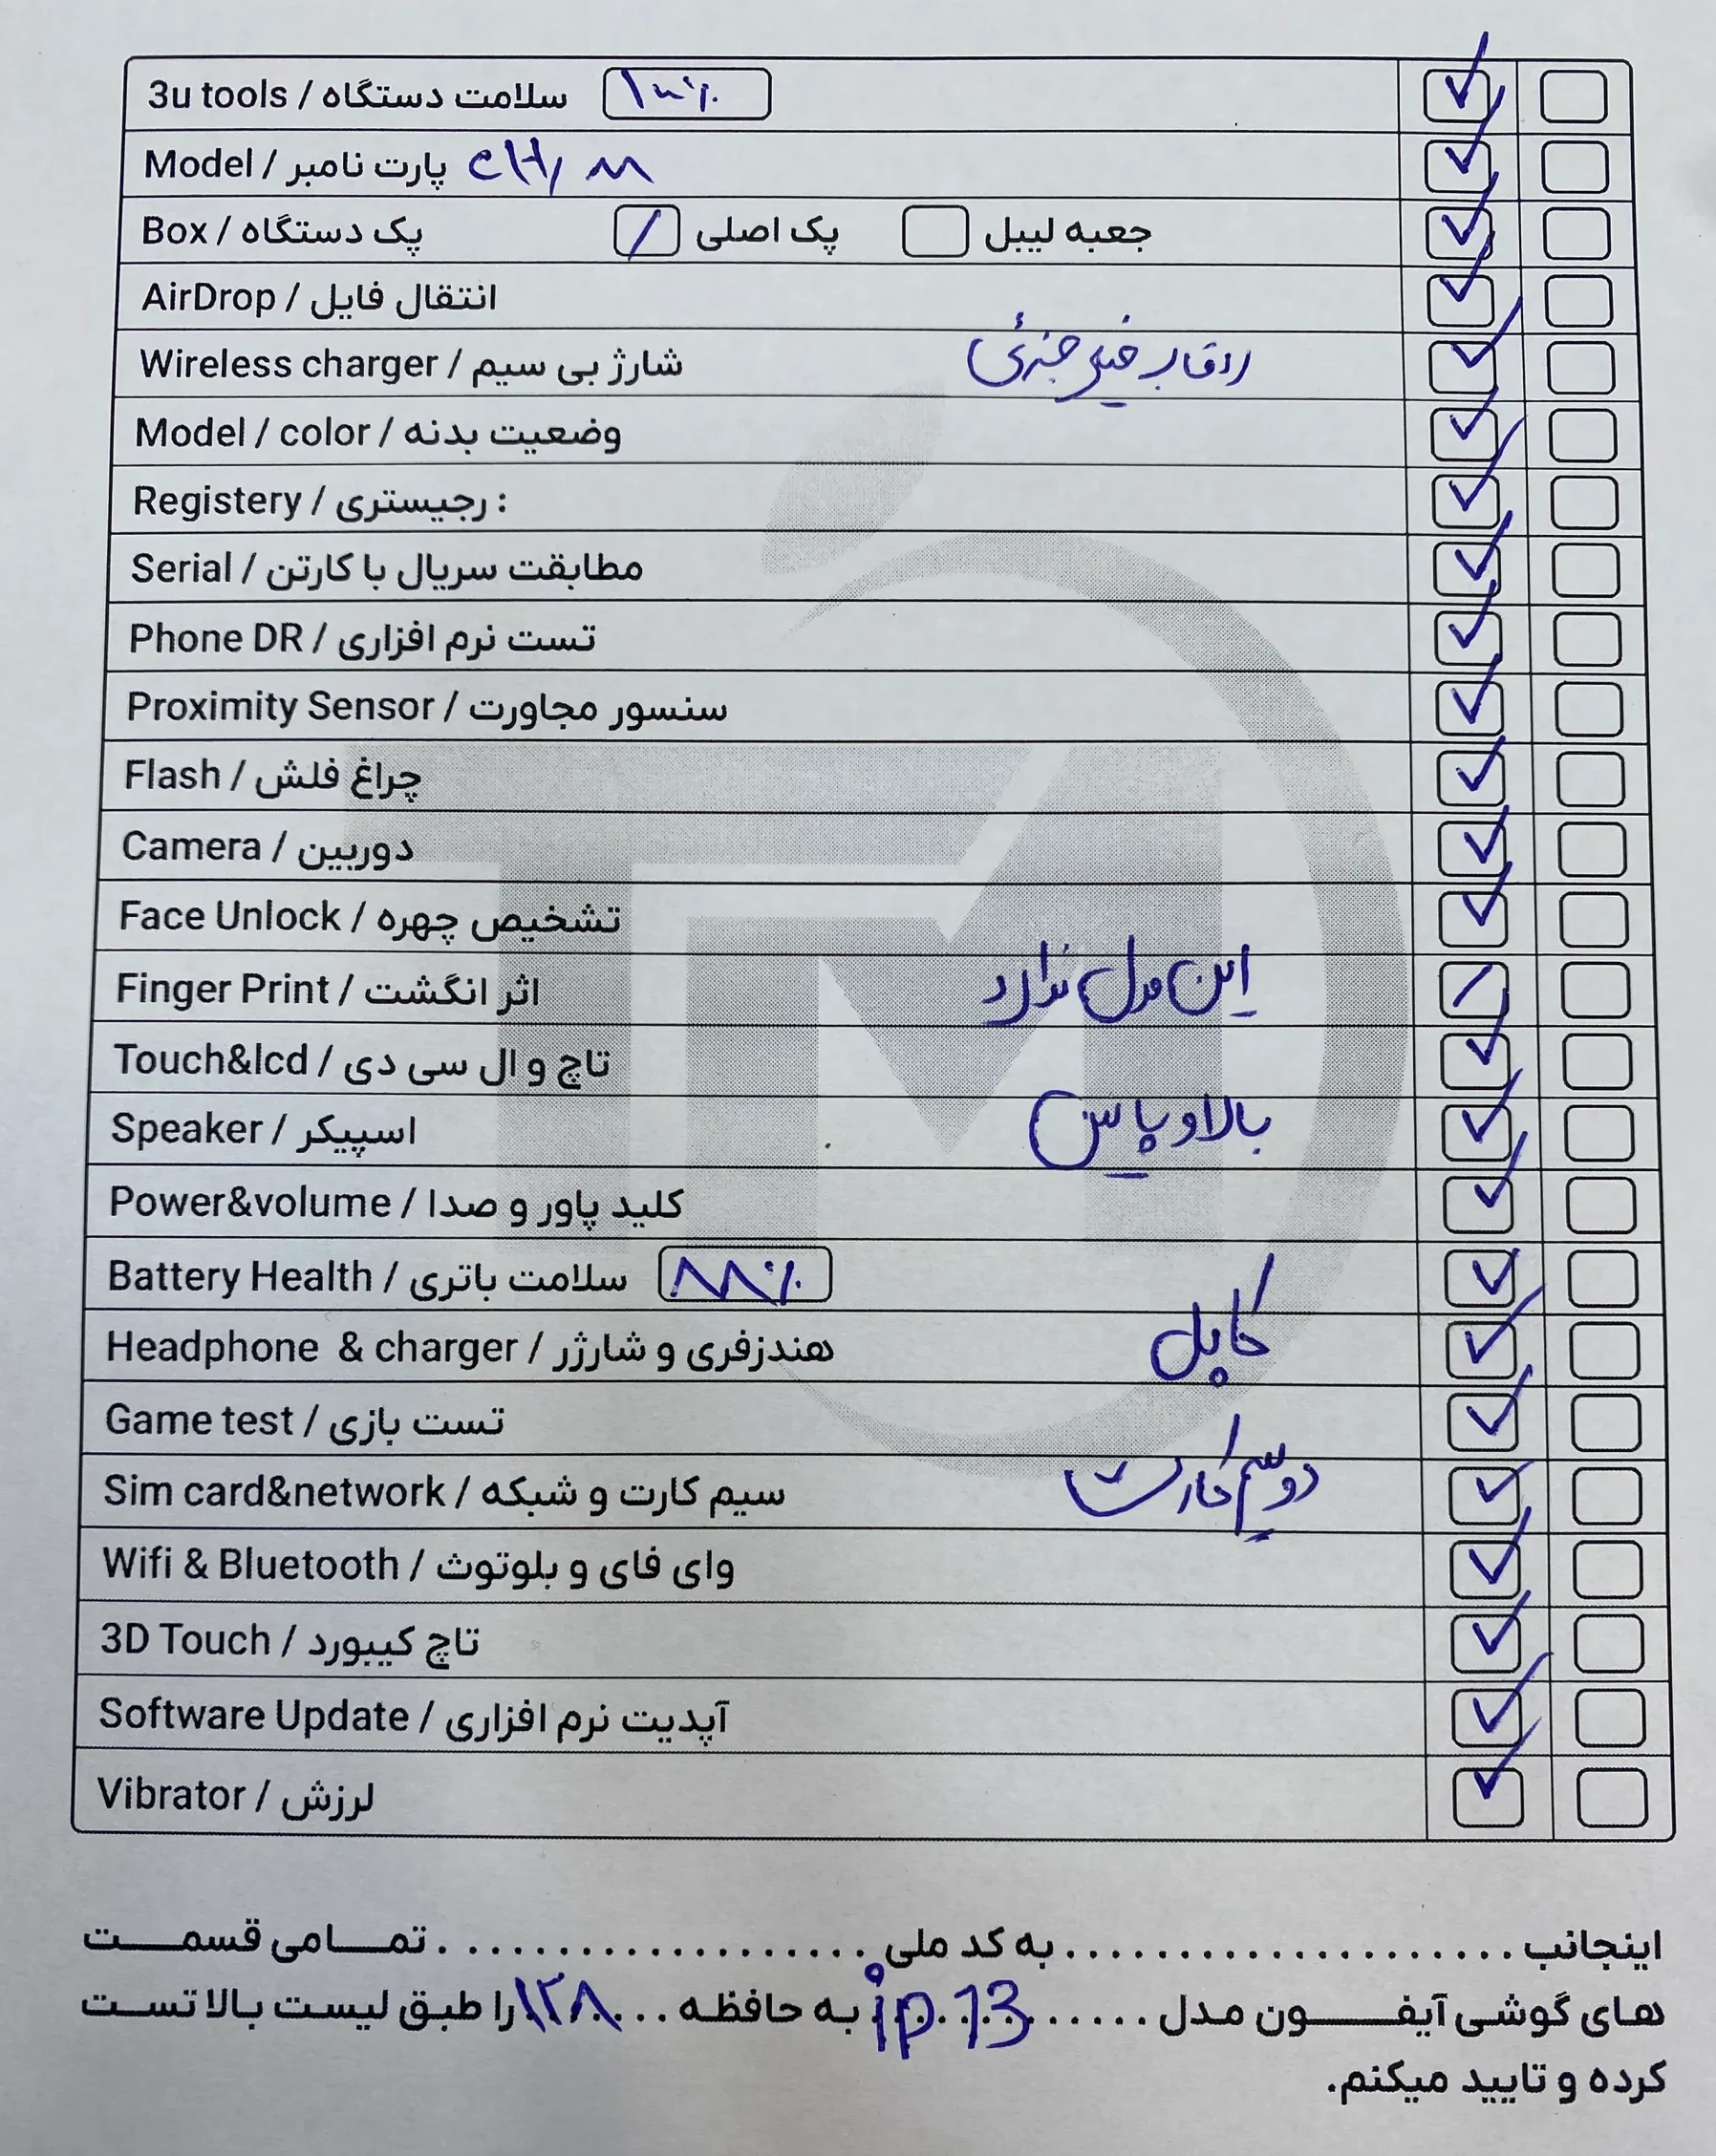 3u tools / سلامت دستگاه ۱۰۰٪
Model / پارت نامبر CH/
Box / پک دستگاه پک اصلی جعبه لیبل
AirDrop / انتقال فایل
Wireless charger / شارژ بی سیم
Model / color / وضعیت بدنه خیلی جزئی
Registery / رجیستری :
Serial / مطابقت سریال با کارتن
Phone DR / تست نرم افزاری
Proximity Sensor / سنسور مجاورت
Flash / چراغ فلش
Camera / دوربین
Face Unlock / تشخیص چهره
Finger Print / اثر انگشت این مدل ندارد
Touch&lcd / تاچ و ال سی دی
Speaker / اسپیکر بالا و پایین
Power&volume / کلید پاور و صدا
Battery Health / سلامت باتری ۸۸٪
Headphone & charger / هندزفری و شارژر کابل
Game test / تست بازی
Sim card&network / سیم کارت و شبکه دو سیم کارت
Wifi & Bluetooth / وای فای و بلوتوث
3D Touch / تاچ کیبورد
Software Update / آپدیت نرم افزاری
Vibrator / لرزش
TM
اینجانب .................... به کد ملی .................... تمامی قسمت
های گوشی آیفون مدل ...... ip 13 به حافظه ...۱۲۸ را طبق لیست بالا تست
کرده و تایید میکنم.